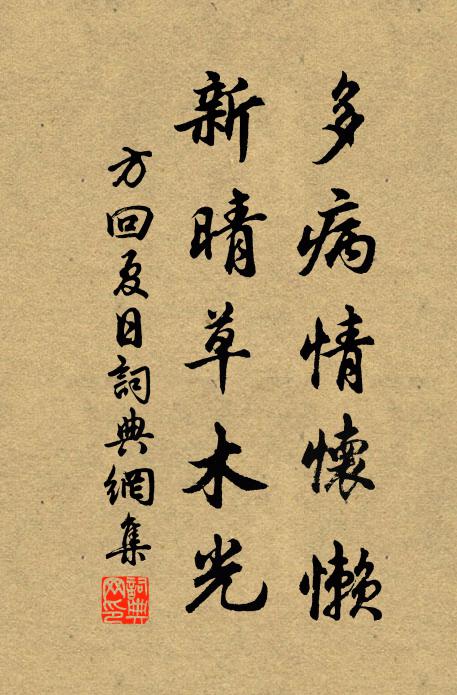 多病情懷懶
新晴草木光
方回夏日詞典網集
詞典網印